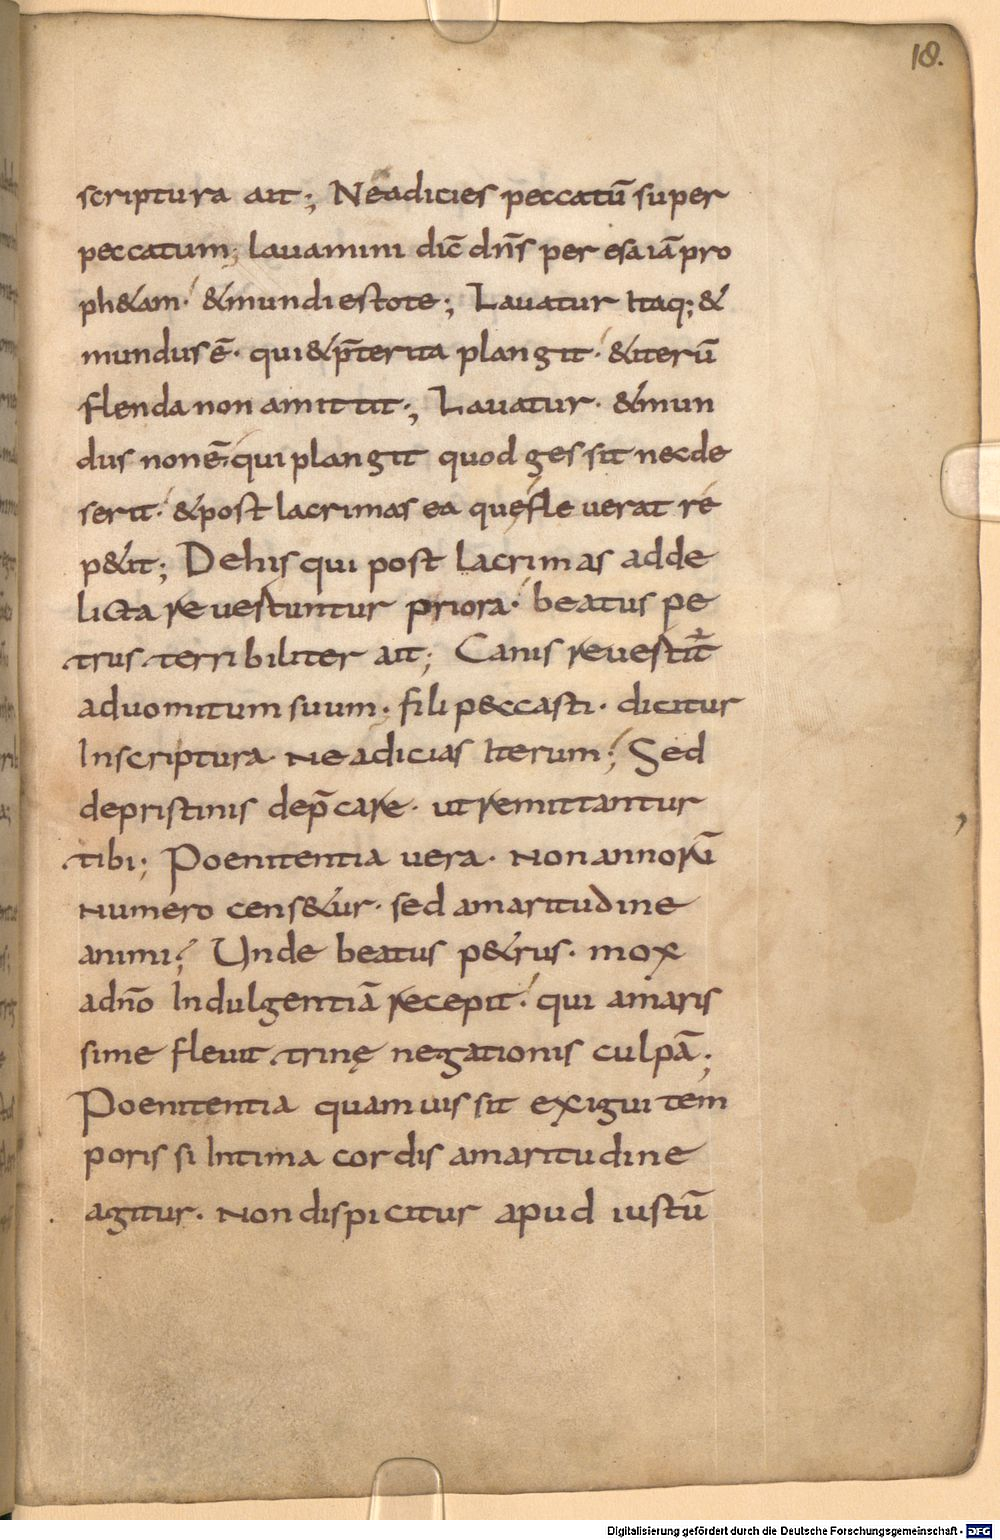 18.
scriptura ait; Neadicies peccatū super
peccatum; lavamini dic̄ dn̄s per esaiā pro
ph&am· &mundi estote; Lavatur itaq; &
mundus ē· qui & p̄terita plangit· & iterū
flenda non amittit·; Lavatur· & mun
dus non ē· qui plangit quod gessit nec de
serit· & post lacrimas ea quę fleverat re
p&it; De his qui post lacrimas ad de
licta revestuntur priora· beatus pe
trus terribiliter ait; Canis revestit̄
ad uomitum suum· fili p&ccasti· dicitur
In scriptura· Ne adicias Iterum; Sed
de pristinis dep̄care· ut remittantur
tibi; Poenitentia vera· Non annorū
Numero cens&ur· sed amaritudine
animi; Unde beatus p&rus· mox
a dn̄o Indulgentiā recepit· qui amaris
sime flevit trinę negationis culpā·;
Poenitentia quamvis sit exigui tem
poris si Intima cordis amaritudine
agitur· Non dispicitur apud iustū
Digitalisierung gefördert durch die Deutsche Forschungsgemeinschaft - DFG